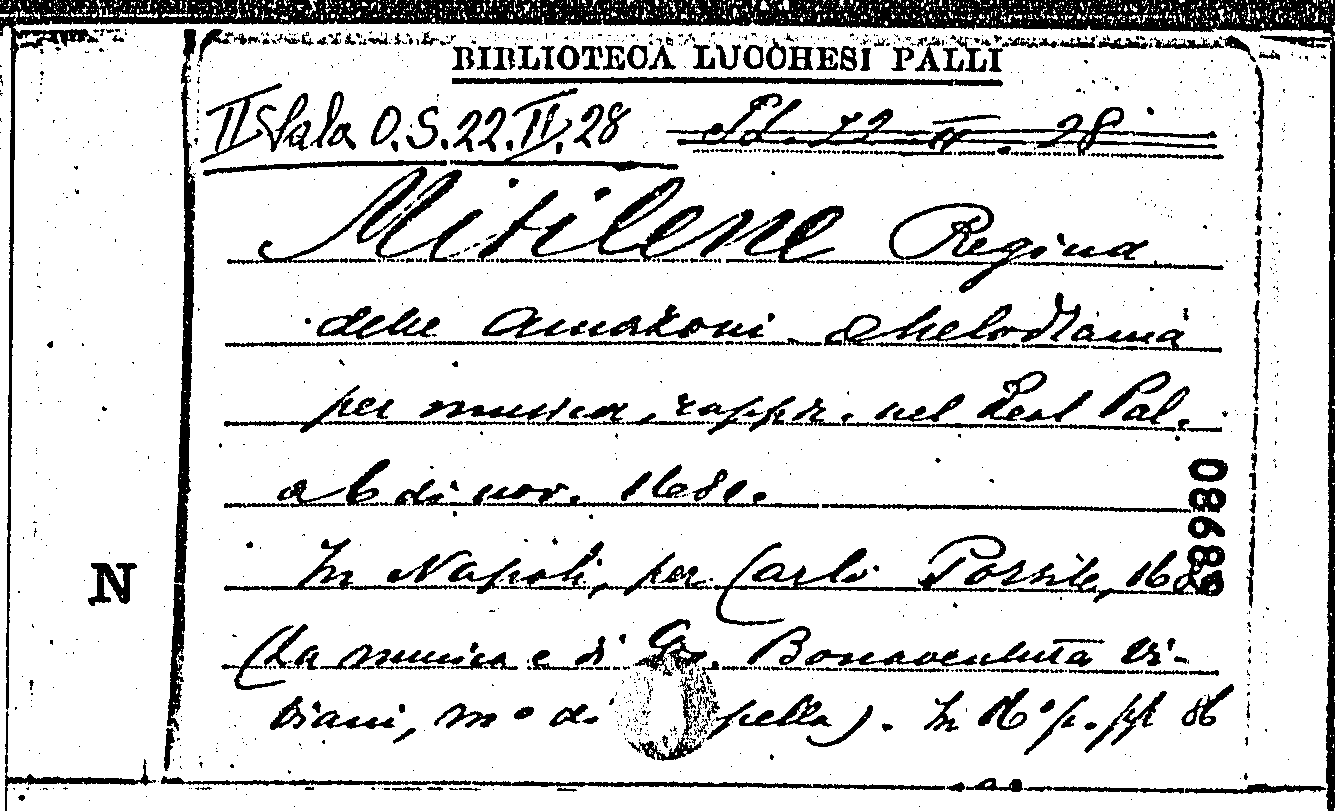 BIBLIOTECA LUCCHESI PALLI
II Sala O.S.22.II.28 SL. 22. II. 28
Mitilene Regina
delle Amazoni. Melodrama
per musica, rappr. nel Real Pal.
a 6 di nov. 1681.
In Napoli, per Carlo Porsile, 168
(La musica e di Gio. Bonaventura Vi-
viani, mº di pella). In 16º p. pp 86
N
08980